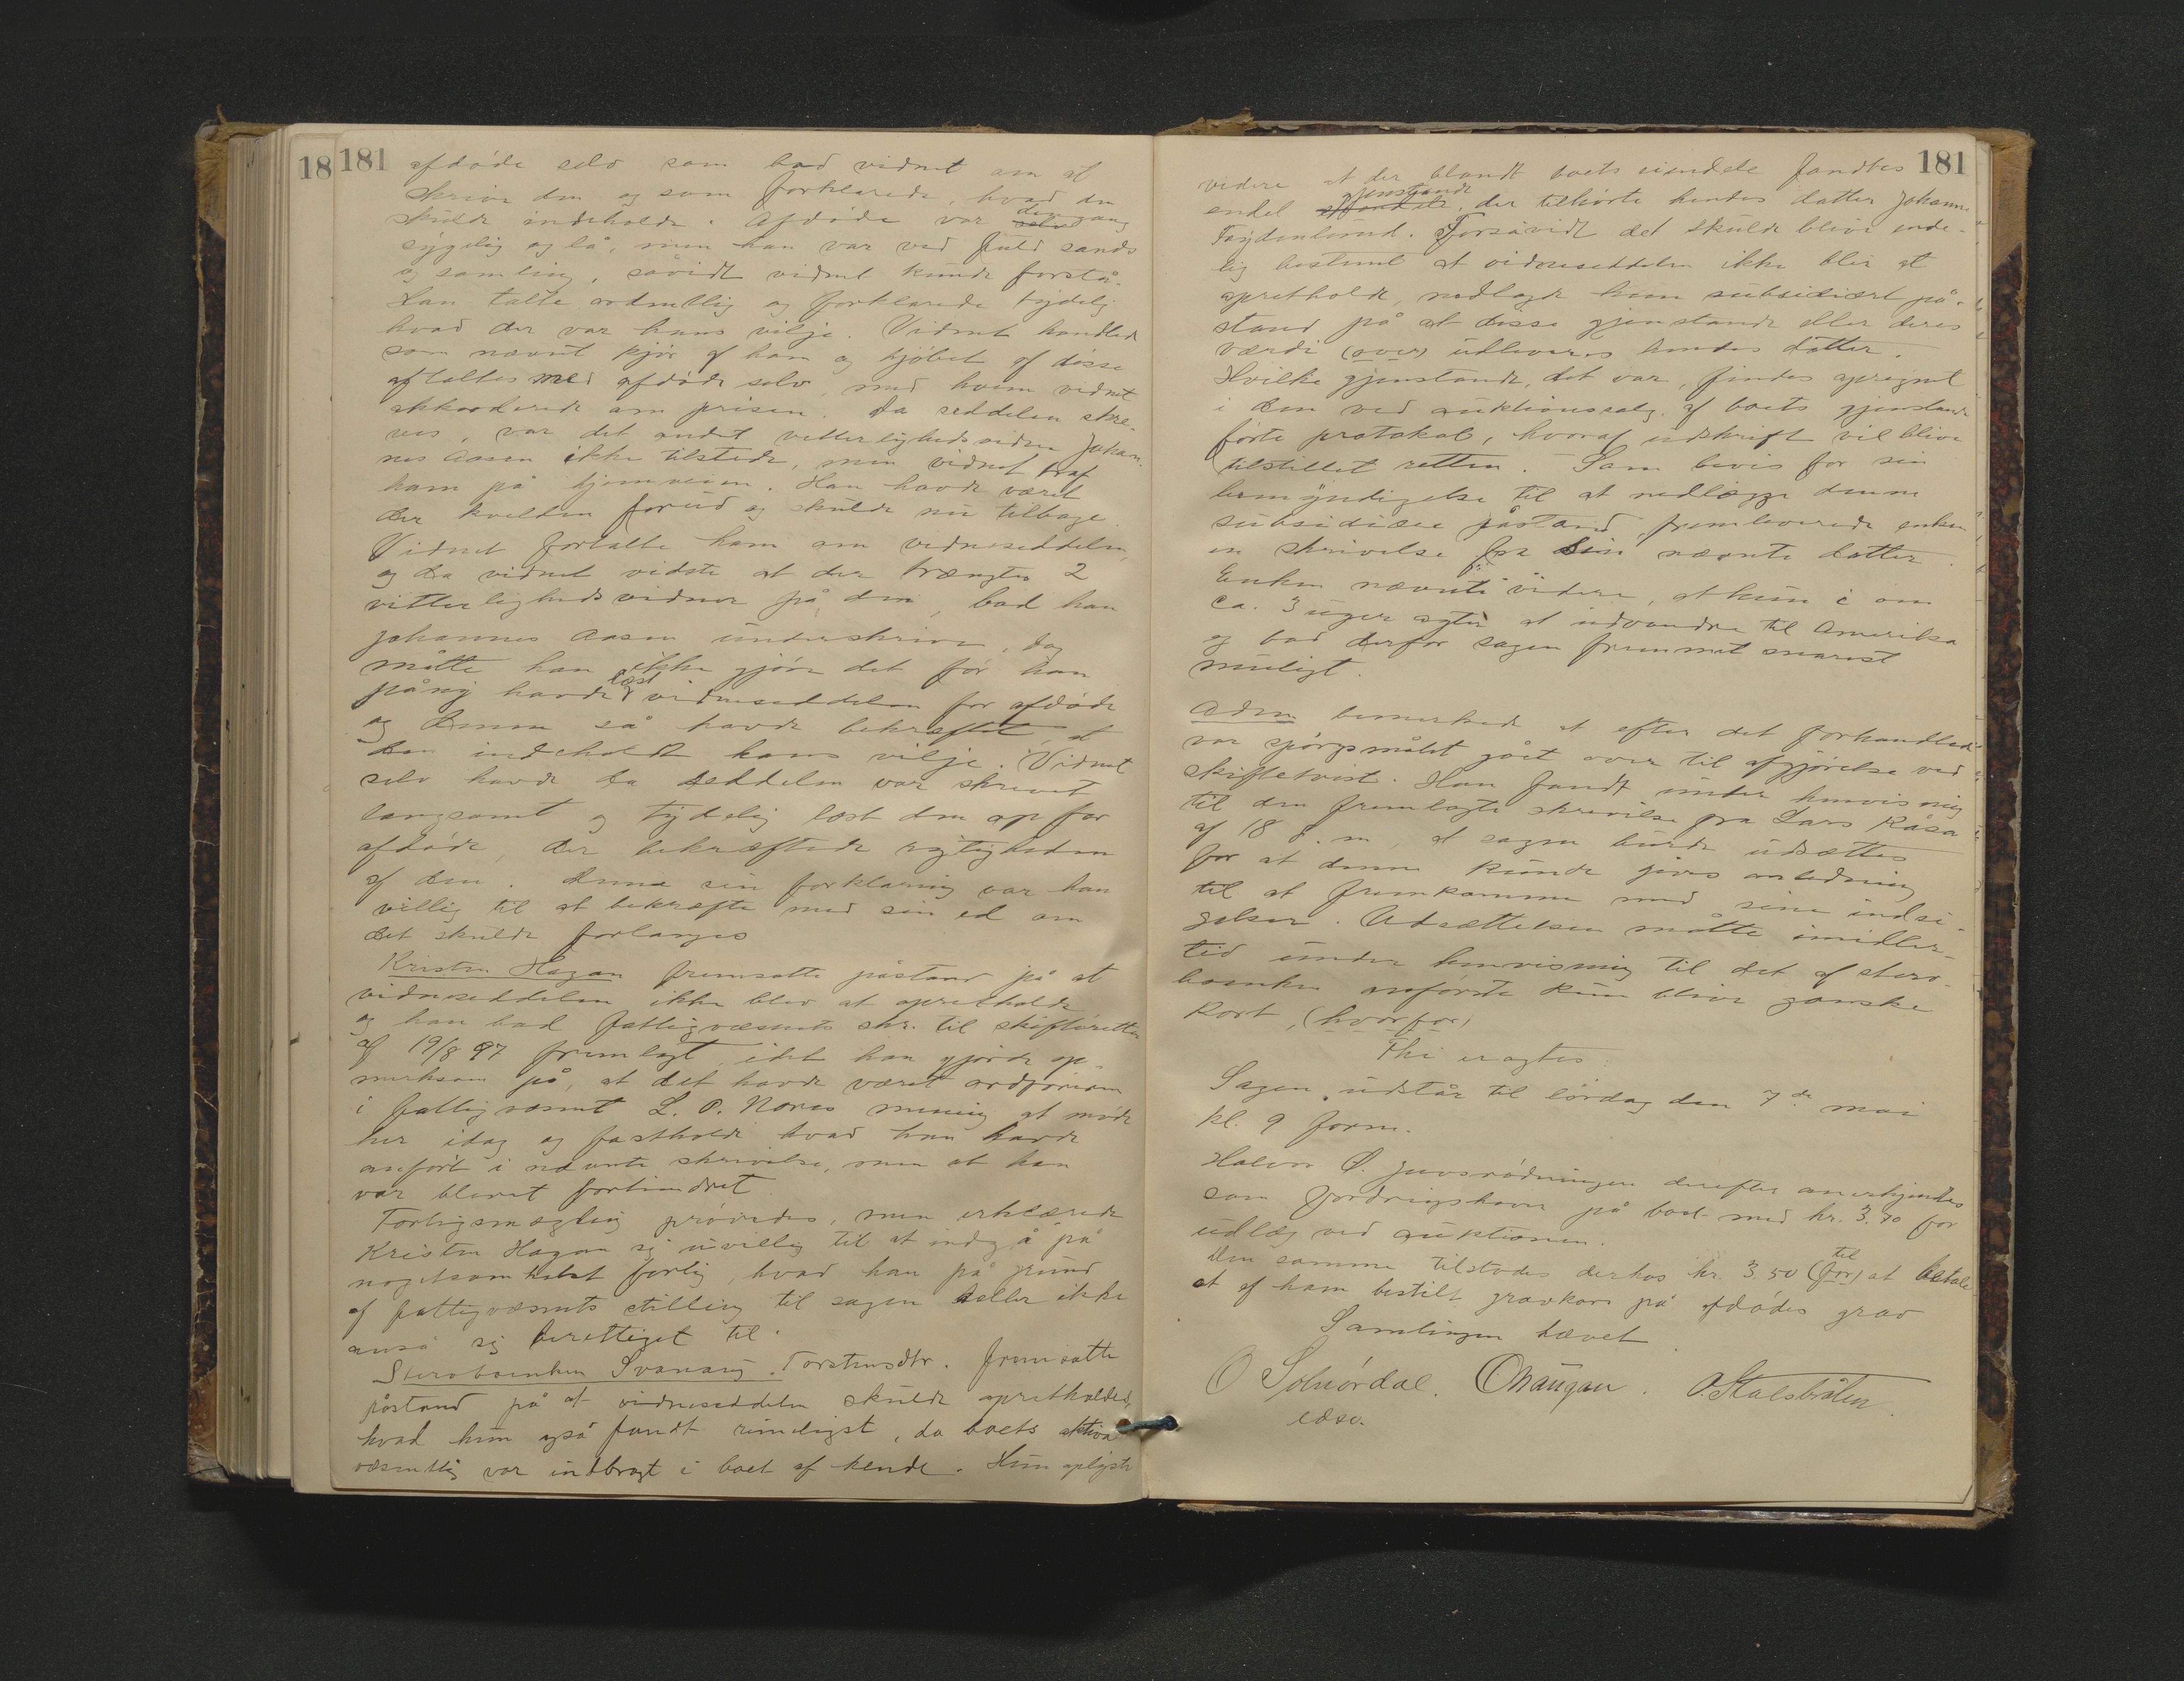 18 181
afdøde selv som bad vidnet om at
skrive den og som forklarede, hvad den
skulde indeholde. Afdøde var selv den gang
sygelig og lå, men han var ved fuld sands
og samling, såvidt vidnet kunde forstå.
Han talte ordentlig og forklarede tydelig
hvad der var hans vilje. Vidnet handled
som nævnt kjør af ham og kjøbet af disse
aftaltes med afdøde selv, med hvem vidnet
akkorderede om prisen. Da seddelen skre-
ves, var det andet vitterlighedsvidne Johan-
nes Aasen ikke tilstede, men vidnet traf
ham på hjemveien. Han havde været
der kvelden forud og skulde nu tilbage.
Vidnet fortalte ham om vidneseddelen,
og da vidnet vidste at der trængtes 2
vitterlighedsvidner på den, bad han
Johannes Aasen underskrive, dog
måtte han ikke gjøre det før han
påny havde læst vidneseddelen for afdøde
og denne så havde bekræftet, at
den indeholdt hans vilje. Vidnet
selv havde da seddelen var skrevet
langsomt og tydelig læst den op for
afdøde, der bekræftede rigtigheden
af den. Denne sin forklaring var han
villig til at bekræfte med sin ed om
det skulde forlanges
Kristen Hagan fremsatte påstand på at
vidneseddelen ikke blev at opretholde
og han bad fattigvæsnets skr. til skifteretten
af 19/8 97 fremlagt, idet han gjorde op-
merksom på, at det havde været ordføreren
i fattigvæsnet L. O. Nores mening at møde
her idag og fastholde hvad han havde
anført i nævnte skrivelse, men at han
var blevet forhindret
Forligsmægling prøvedes, men erklærede
Kristen Hagan sig uvillig til at indgå på
nogetsomhelst forlig, hvad han på grund
af fattigvæsnets stilling til sagen heller ikke
anså sig berettiget til.
Stervboenken Svanaug Torstensdtr. fremsatte
påstand på at vidneseddelen skulde opretholdes,
hvad hun også fandt rimeligst, da boets aktiva
væsentlig var indbragt i boet af hende. Hun oplyste
181
videre at der blandt boets eiendele fandtes
endel gjenstande, der tilhørte hendes datter Johanne
Frydenlund. Forsåvidt det skulde blive ende-
lig bestemt at vidneseddelen ikke blir at
opretholde, nedlagde hun subsidiært på-
stand på at disse gjenstande eller deres
værdi (over) udleveres hendes datter.
Hvilke gjenstande, det var, findes opregnet
i den ved auktionssalg af boets gjenstande
førte protokol, hvoraf udskrift vil blive
tilstillet retten. Som bevis for sin
bemyndigelse til at nedlægge denne
subsidiære påstand, fremleverede enken
en skrivelse fra sin nævnte datter.
Enken nævnte videre, at hun i om
ca. 3 uger agter at udvandre til Amerika
og bad derfor sagen fremmet snarest
muligt.
Adm. bemerkede at efter det forhandlede
var spørgsmålet gået over til afgjørelse ved
skiftetvist. Han fandt under henvisning
til den fremlagte skrivelse fra Lars Råsa
af 18 d. m., at sagen burde udsættes
for at denne kunde gives anledning
til at fremkomme med sine indsi-
gelser. Udsættelsen måtte imidler-
tid under henvisning til det af sterv-
boenken anførte kun blive ganske
kort, (hvorfor)
Thi eragtes:
Sagen udstår til lørdag den 7de mai
kl. 9 form.
Halvor Ø. Juvsrødningen derefter anerkjendtes
som fordringshaver på boet med kr. 3.70 for
udlæg ved auktionen.
Den samme tilstodes derhos kr. 3 50 (for) til at betale
et af ham bestilt gravkors på afdødes grav
Samlingen hævet
O Solnørdal. O Haugan. O. Stalsbråten.
edsv.